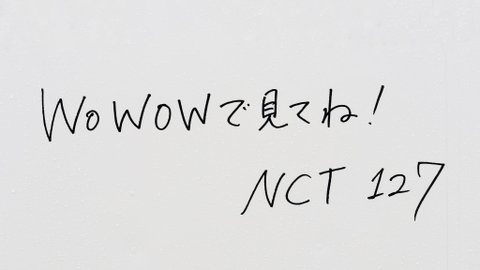 WoWOWで見てね!
NCT 127